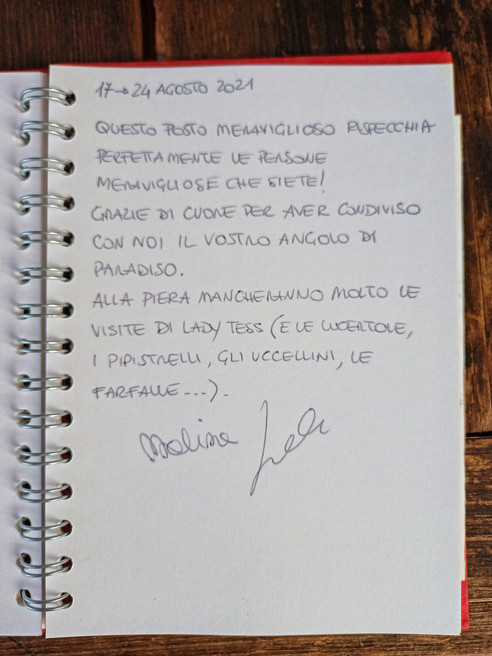 17→24 AGOSTO 2021
QUESTO POSTO MERAVIGLIOSO RISPECCHIA
PERFETTAMENTE LE PERSONE
MERAVIGLIOSE CHE SIETE!
GRAZIE DI CUORE PER AVER CONDIVISO
CON NOI IL VOSTRO ANGOLO DI
PARADISO.
ALLA PIERA MANCHERANNO MOLTO LE
VISITE DI LADY TESS (E LE LUCERTOLE,
I PIPISTRELLI, GLI UCCELLINI, LE
FARFALLE...).